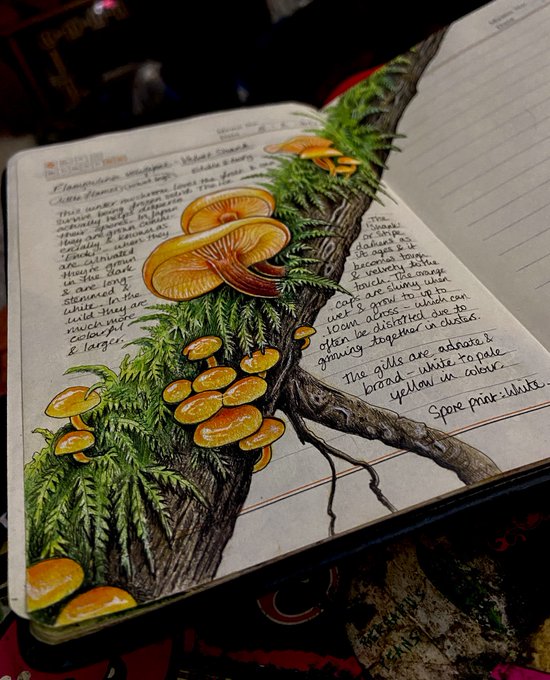 Flammulina velutipes - Velvet Shank
(little flames) Edible & tasty
This winter mushroom loves the frost &
survive being frozen solid. The ice
actually helps disperse
their spores. In Japan
they are grown comm-
ercially & known as
'Enoki' - when they
are cultivated
they're grown
in the dark
& are long
stemmed &
white. In the
wild they are
much more
colourful
& larger.
The
'Shank'
or Stipe
darkens as
it ages & it
becomes tough
& velvety to the
touch. The orange
caps are slimy when
wet & grow to up to
10cm across - which can
often be distorted due to
growing together in clusters.
The gills are adnate &
broad - white to pale
yellow in colour.
Spore print: White